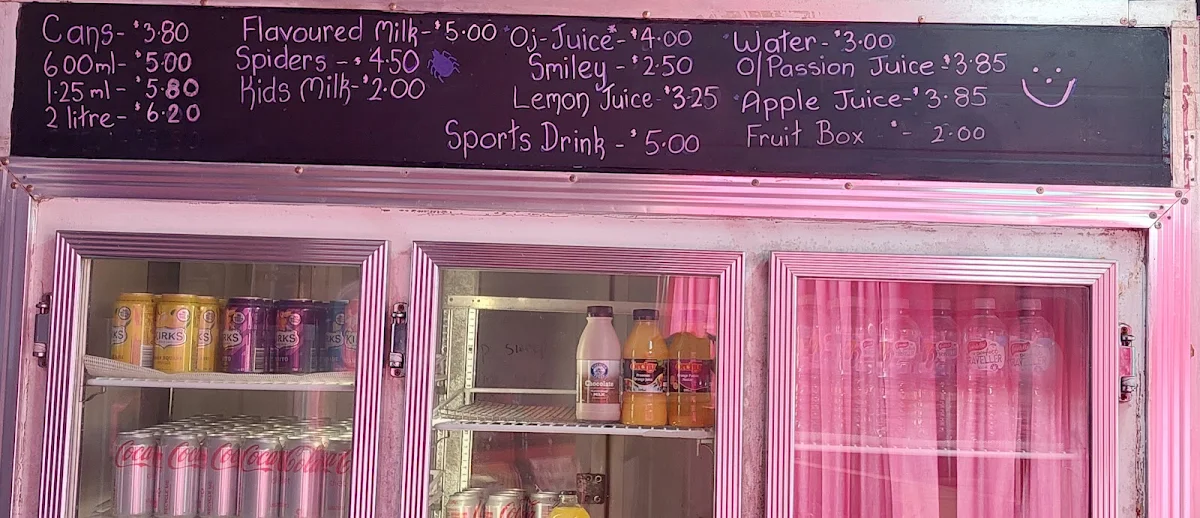 Cans - $3.80
600ml - $5.00
1.25 ml - $5.80
2 litre - $6.20
Flavoured Milk - $5.00
Spiders - $4.50
Kids Milk - $2.00
OJ - Juice - $4.00
Smiley - $2.50
Lemon Juice $3.25
Sports Drink - $5.00
Water - $3.00
O/Passion Juice $3.85
Apple Juice - $3.85
Fruit Box $ - 2.00
KIRKS
Chocolate
MILK